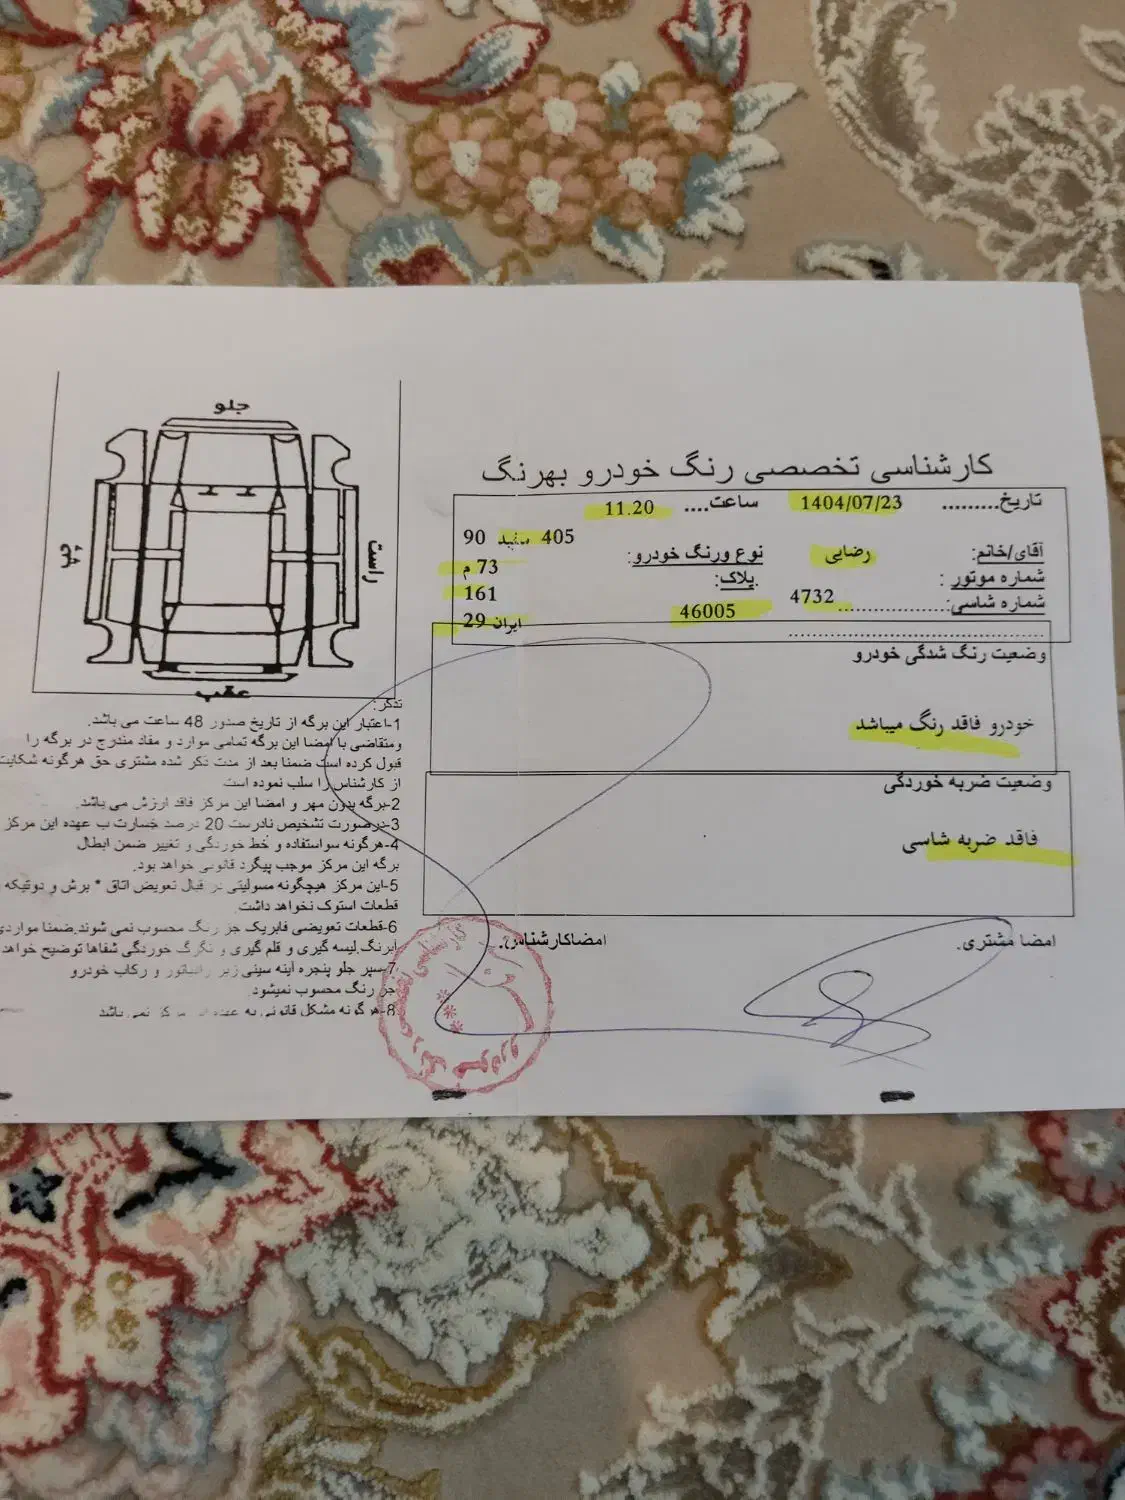 کارشناسی تخصصی رنگ خودرو بهرنگ
تاریخ.......... 1404/07/23 ساعت.... 11.20
آقای/خانم: رضایی نوع ورنگ خودرو: 405 سفید 90
شماره موتور : پلاک: 73 م
161
شماره شاسی:.................. 4732 46005 ایران 29
وضعیت رنگ شدگی خودرو
خودرو فاقد رنگ میباشد
وضعیت ضربه خوردگی
فاقد ضربه شاسی
امضا مشتری.
امضاکارشناس.
جلو
راست
چپ
عقب
تذکر:
1-اعتبار این برگه از تاریخ صدور 48 ساعت می باشد.
ومتقاضی با امضا این برگه تمامی موارد و مفاد مندرج در برگه را
قبول کرده است ضمنا بعد از مدت ذکر شده مشتری حق هرگونه شکایت
از کارشناس را سلب نموده است
2-برگه بدون مهر و امضا این مرکز فاقد ارزش می باشد.
3-درصورت تشخیص نادرست 20 درصد خسارت ب عهده این مرکز
4-هرگونه سواستفاده و خط خوردگی و تغییر ضمن ابطال
برگه این مرکز موجب پیگرد قانونی خواهد بود.
5-این مرکز هیچگونه مسولیتی در قبال تعویض اتاق * برش و دوتیکه
قطعات استوک نخواهد داشت.
6-قطعات تعویضی فابریک جز رنگ محسوب نمی شوند.ضمنا مواردی
ابرنگ.لیسه گیری و قلم گیری و تگرگ خوردگی شفاها توضیح خواهد
7-سپر جلو پنجره آینه سینی زیر رادیاتور و رکاب خودرو
جز رنگ محسوب نمیشود
8-هرگونه مشکل قانونی به عهده این مرکز نمی باشد